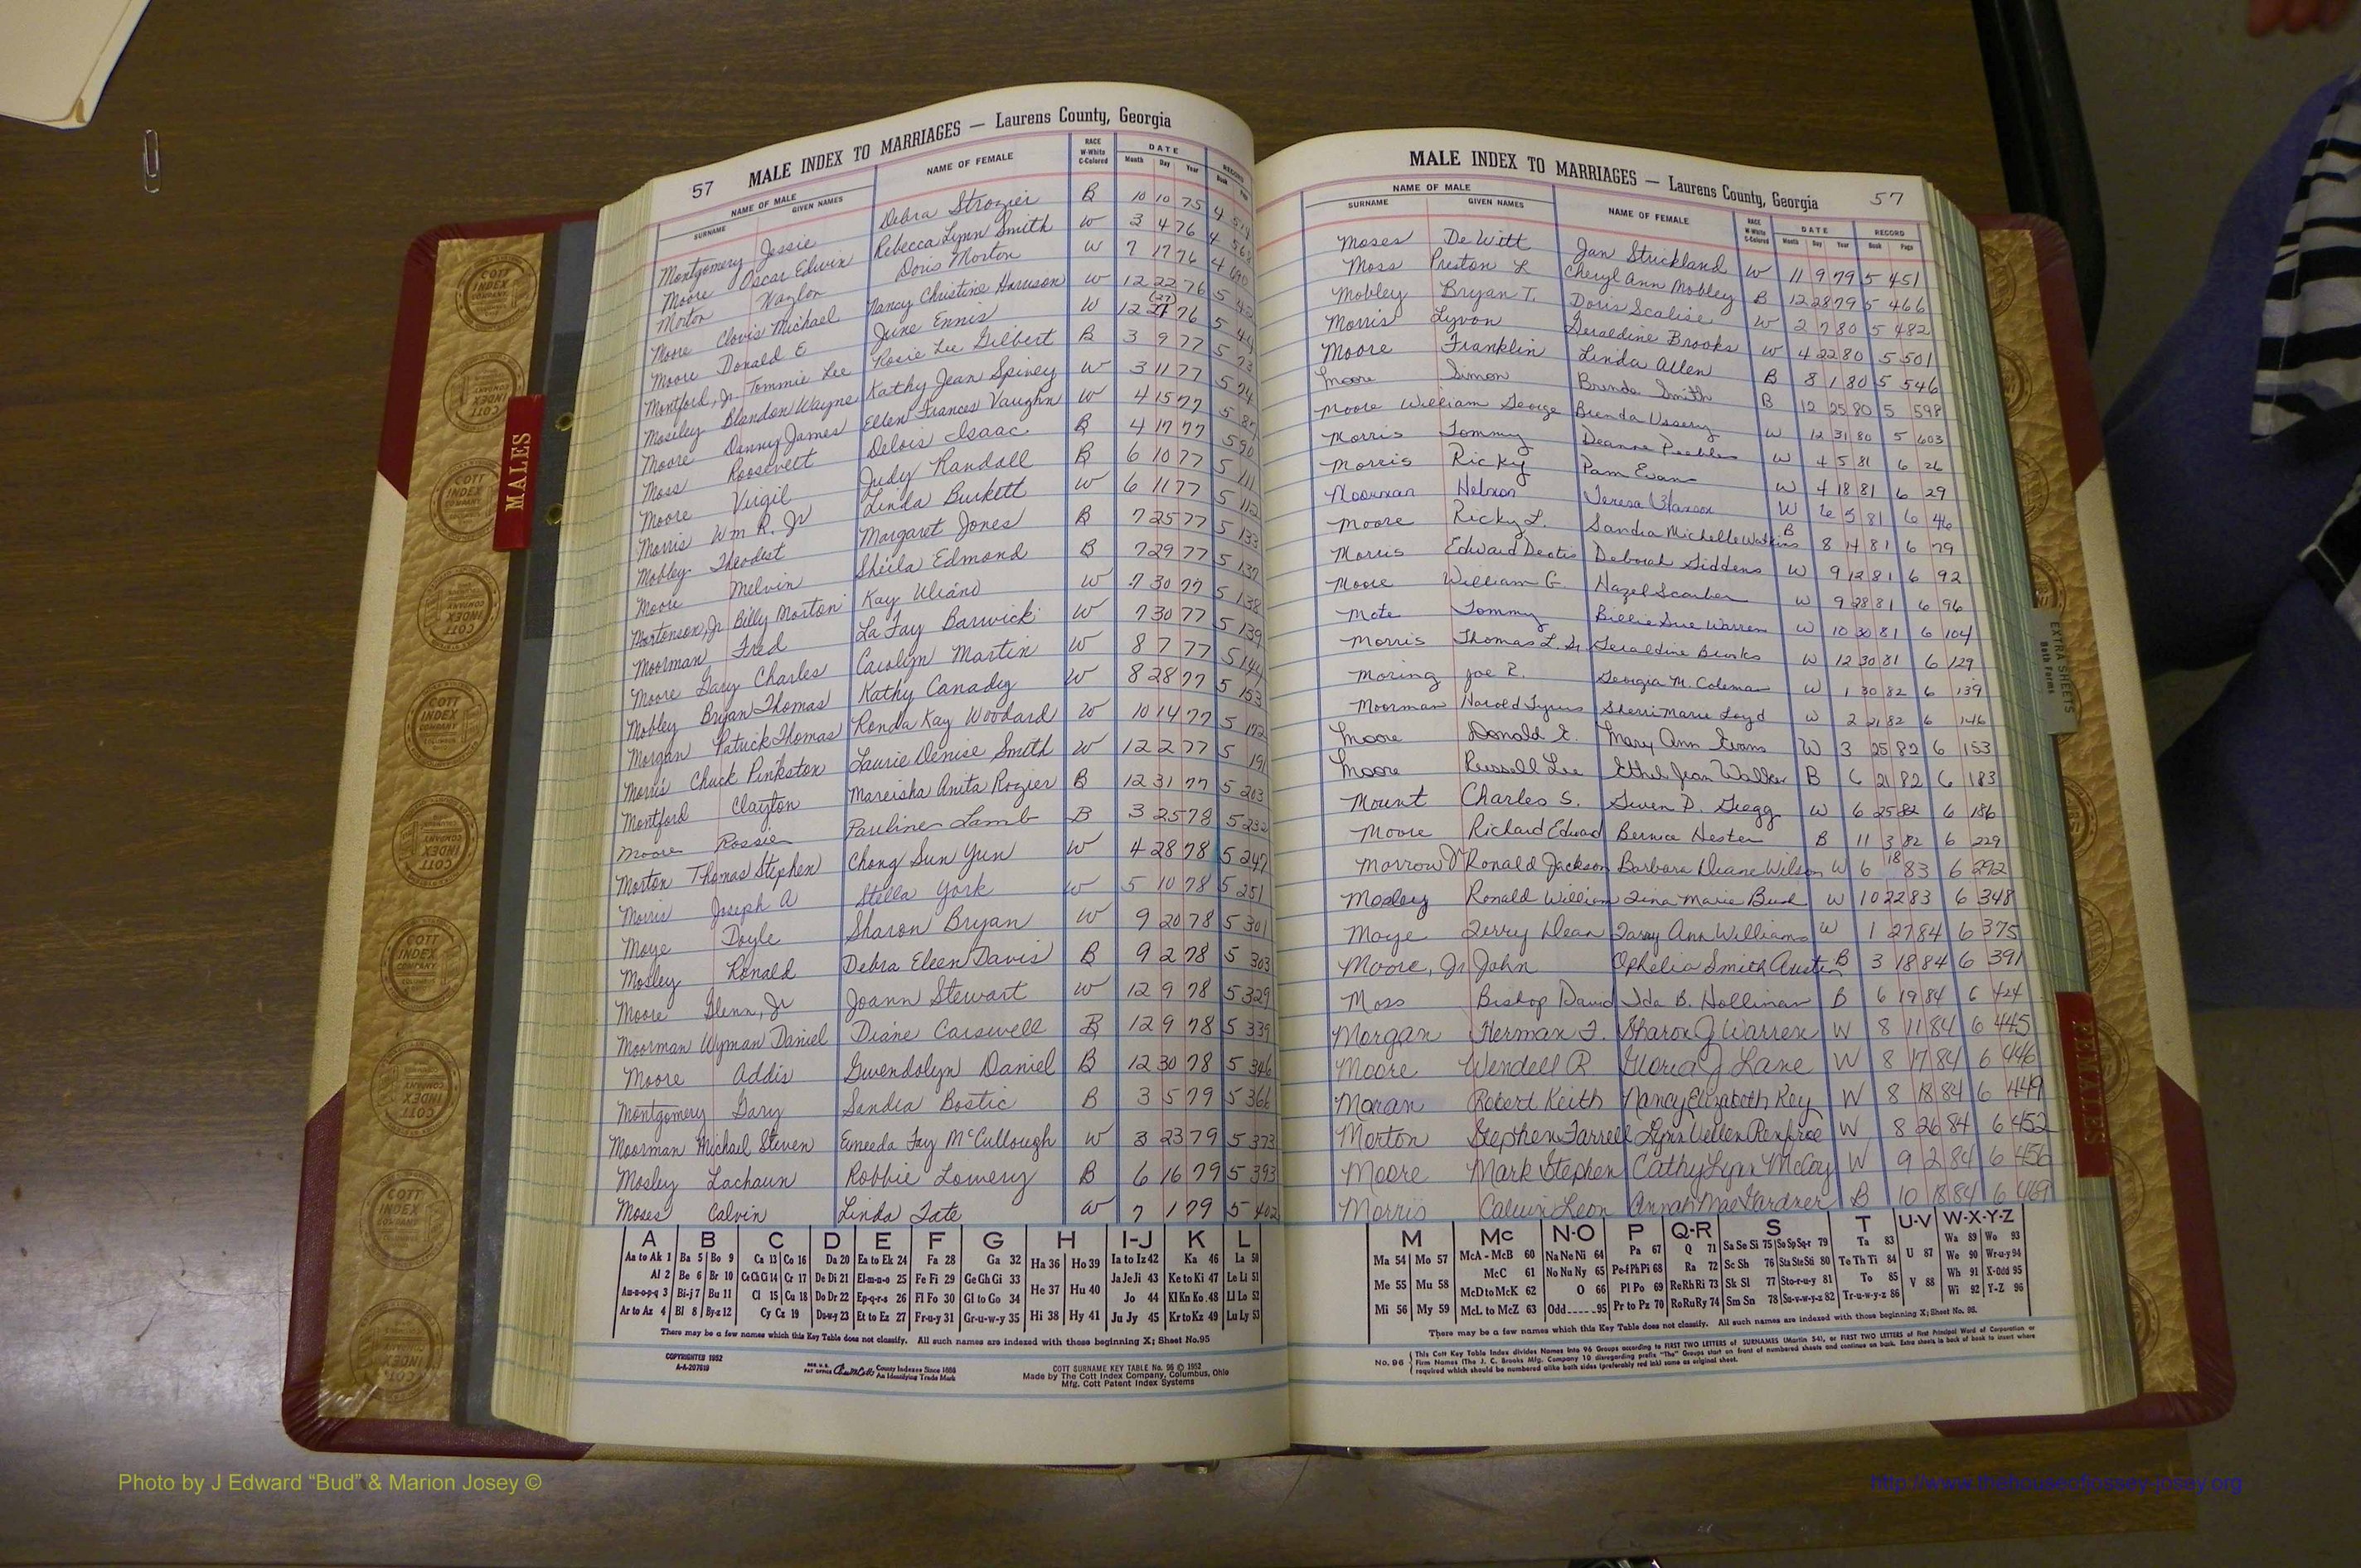 57 MALE INDEX TO MARRIAGES — Laurens County, Georgia
NAME OF MALE NAME OF FEMALE RACE W-White C-Colored DATE RECORD
SURNAME GIVEN NAMES Month Day Year Book
Montgomery Jessie Debra Strozier B 10 10 75 4
Moore Oscar Edwin Rebecca Lynn Smith W 3 4 76 4 568
Morton Waylon Doris Morton W 7 17 76 4
Moore Clovis Michael Nancy Christine Harrison W 12 22 76 5
Moore Donald E June Ennis W 12 27 76 5
Montford, Jr. Tommie Lee Rosie Lee Gilbert B 3 9 77 5 73
Moseley Blandon Wayne Kathy Jean Spivey W 3 11 77 5 74
Moore Danny James Ellen Frances Vaughn W 4 15 77 5
Moss Roosevelt Delois Isaac B 4 17 77 5 90
Moore Virgil Judy Randall B 6 10 77 5 111
Morris Wm R. Jr Linda Burkett W 6 11 77 5 112
Mobley Theodist Margaret Jones B 7 25 77 5 133
Moore Melvin Sheila Edmond B 7 29 77 5 137
Mortonson, Jr Billy Morton Kay Uliano W 7 30 77 5 138
Moorman Fred La Fay Barwick W 7 30 77 5 139
Moore Gary Charles Carolyn Martin W 8 7 77 5 144
Mobley Bryan Thomas Kathy Canady W 8 28 77 5 153
Morgan Patrick Thomas Ronda Kay Woodard W 10 14 77 5 172
Morris Chuck Pinkston Laurie Denise Smith W 12 2 77 5 191
Montford Clayton Mareisha Anita Rozier B 12 31 77 5 203
Moore Rossie Pauline Lamb B 3 25 78 5 232
Morton Thomas Stephen Chong Sun Yun W 4 28 78 5 247
Morris Joseph A Stella York W 5 10 78 5 251
Moye Doyle Sharon Bryan W 9 20 78 5 301
Mosley Ronald Debra Eleen Davis B 9 2 78 5 303
Moore Glenn, Jr Joann Stewart W 12 9 78 5 329
Moorman Wyman Daniel Diane Carswell B 12 9 78 5 339
Moore Addis Gwendolyn Daniel B 12 30 78 5 346
Montgomery Gary Sandra Bostic B 3 5 79 5 366
Moorman Michael Steven Emeeda Fay McCullough W 3 23 79 5 373
Mosley Lachaun Robbie Lowery B 6 16 79 5 393
Moses Calvin Linda Tate W 7 1 79 5 402
A B C D E F G H I-J K L
Aa to Ak 1 Ba 5 Bo 9 Ca 13 Co 16 Da 20 Ea to Ek 24 Fa 28 Ga 32 Ha 36 Ho 39 Ia to Iz 42 Ka 46 La 50
Al 2 Be 6 Br 10 Ce Ch Ci 14 Cr 17 De Di 21 El-m-n-o 25 Fe Fi 29 Ge Gh Gi 33 He 37 Hu 40 Ja Je Ji 43 Ke to Ki 47 Le Li 51
Am-n-o-p-q 3 Bi-j 7 Bu 11 Cl 15 Cu 18 Do Dr 22 Ep-q-r-s 26 Fl Fo 30 Gl to Go 34 Jo 44 Kl Kn Ko 48 Ll Lo 52
Ar to Az 4 Bl 8 By-z 12 Cy Cz 19 Du-w-y 23 Et to Ez 27 Fr-u-y 31 Gr-u-w-y 35 Hi 38 Hy 41 Ju Jy 45 Kr to Kz 49 Lu Ly 53
There may be a few names which this Key Table does not classify. All such names are indexed with those beginning X; Sheet No.95
COPYRIGHTED 1952
A-A-207619
REG. U.S. PAT OFFICE County Indexes Since 1888
An Identifying Trade Mark
COTT SURNAME KEY TABLE No. 96 © 1952
Made by The Cott Index Company, Columbus, Ohio
Mfg. Cott Patent Index Systems
MALE INDEX TO MARRIAGES — Laurens County, Georgia 57
NAME OF MALE NAME OF FEMALE RACE W-White C-Colored DATE RECORD
SURNAME GIVEN NAMES Month Day Year Book Page
Moses De Witt Jan Strickland W 11 9 79 5 451
Moss Preston L Cheryl Ann Mobley B 12 28 79 5 466
Mobley Bryan T. Doris Scalise W 2 7 80 5 482
Morris Lyvon Geraldine Brooks W 4 22 80 5 501
Moore Franklin Linda Allen B 8 1 80 5 546
Moore Simon Brenda Smith B 12 25 80 5 598
Moore William George Brenda Ussery W 12 31 80 5 603
Morris Tommy Deanne Peebles W 4 5 81 6 26
Morris Ricky Pam Evans W 4 18 81 6 29
Moorman Nelson Teresa W 6 5 81 6 46
Moore Ricky L. Sandra Michelle Watkins B 8 14 81 6 79
Morris Edward Deotis Deborah Giddens W 9 12 81 6 92
Moore William G. Hazel W 9 28 81 6 96
Mote Tommy Billie Sue Warren W 10 30 81 6 104
Morris Thomas L. Sr. Geraldine Brooks W 12 30 81 6 129
Moring Joe E. Georgia M. Coleman W 1 30 82 6 139
Moorman Harold Tyrus Sherri Marie Loyd W 2 21 82 6 146
Moore Donald E. Mary Ann Evans W 3 25 82 6 153
Moore Russell Lee Ethel Jean Walker B 6 21 82 6 183
Mount Charles S. Gwen D. Gragg W 6 25 82 6 186
Moore Richard Edward Bernice Hester B 11 3 82 6 229
Morrow Jr Ronald Jackson Barbara Diane Wilson W 6 18 83 6 292
Mosley Ronald William Tina Marie Bush W 10 22 83 6 348
Moye Terry Dean Tammy Ann Williams W 1 27 84 6 375
Moore, Jr John Ophelia Smith Austin B 3 18 84 6 391
Moss Bishop David Ida B. Holliman B 6 19 84 6 424
Morgan Herman F. Sharon J Warren W 8 11 84 6 445
Moore Wendell R Gloria J Lane W 8 17 84 6 446
Moran Robert Keith Nancy Elizabeth Key W 8 18 84 6 449
Morton Stephen Farrell Lynn Vellen Renfroe W 8 26 84 6 452
Moore Mark Stephen Cathy Lynn McCoy W 9 2 84 6 456
Morris Calvin Leon Annah Mae Gardner B 10 18 84 6 469
M Mc N-O P Q-R S T U-V W-X-Y-Z
Ma 54 Mo 57 McA - McB 60 Na Ne Ni 64 Pa 67 Q 71 Sa Se Si 75 So Sp Sq-r 79 Ta 83 Wa 89 Wo 93
McC 61 No Nu Ny 65 Pe-f Ph Pi 68 Ra 72 Sc Sh 76 Sta Ste Sti 80 Te Th Ti 84 U 87 We 90 Wr-u-y 94
Me 55 Mu 58 McD to McK 62 O 66 Pl Po 69 Re Rh Ri 73 Sk Sl 77 Sto-r-u-y 81 To 85 Wh 91 X-Odd 95
Mi 56 My 59 McL to McZ 63 Odd-----95 Pr to Pz 70 Ro Ru Ry 74 Sm Sn 78 Su-v-w-y-z 82 Tr-u-w-y-z 86 V 88 Wi 92 Y-Z 96
There may be a few names which this Key Table does not classify. All such names are indexed with those beginning X; Sheet No. 95.
No. 96 This Cott Key Table Index divides Names into 96 Groups according to FIRST TWO LETTERS of SURNAMES (Martin 54), or FIRST TWO LETTERS of First Principal Word of Corporation or
Firm Names (The J. C. Brooks Mfg. Company 10 disregarding prefix "The" Groups start on front of numbered sheets and continue on back. Extra sheets in back of book to insert where
required which should be numbered alike both sides (preferably red ink) same as original sheet.
MALES
FEMALES
EXTRA SHEETS
Both Forms
COTT INDEX COMPANY
Photo by J Edward “Bud” & Marion Josey ©
http://www.thehouseofjossey-josey.org